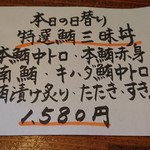 本日の日替り
特選鮪三昧丼
本鮪中トロ・本鮪赤身
南鮪・キハダ鮪中トロ
鮪漬け炙り・たたき・すき
1,580円